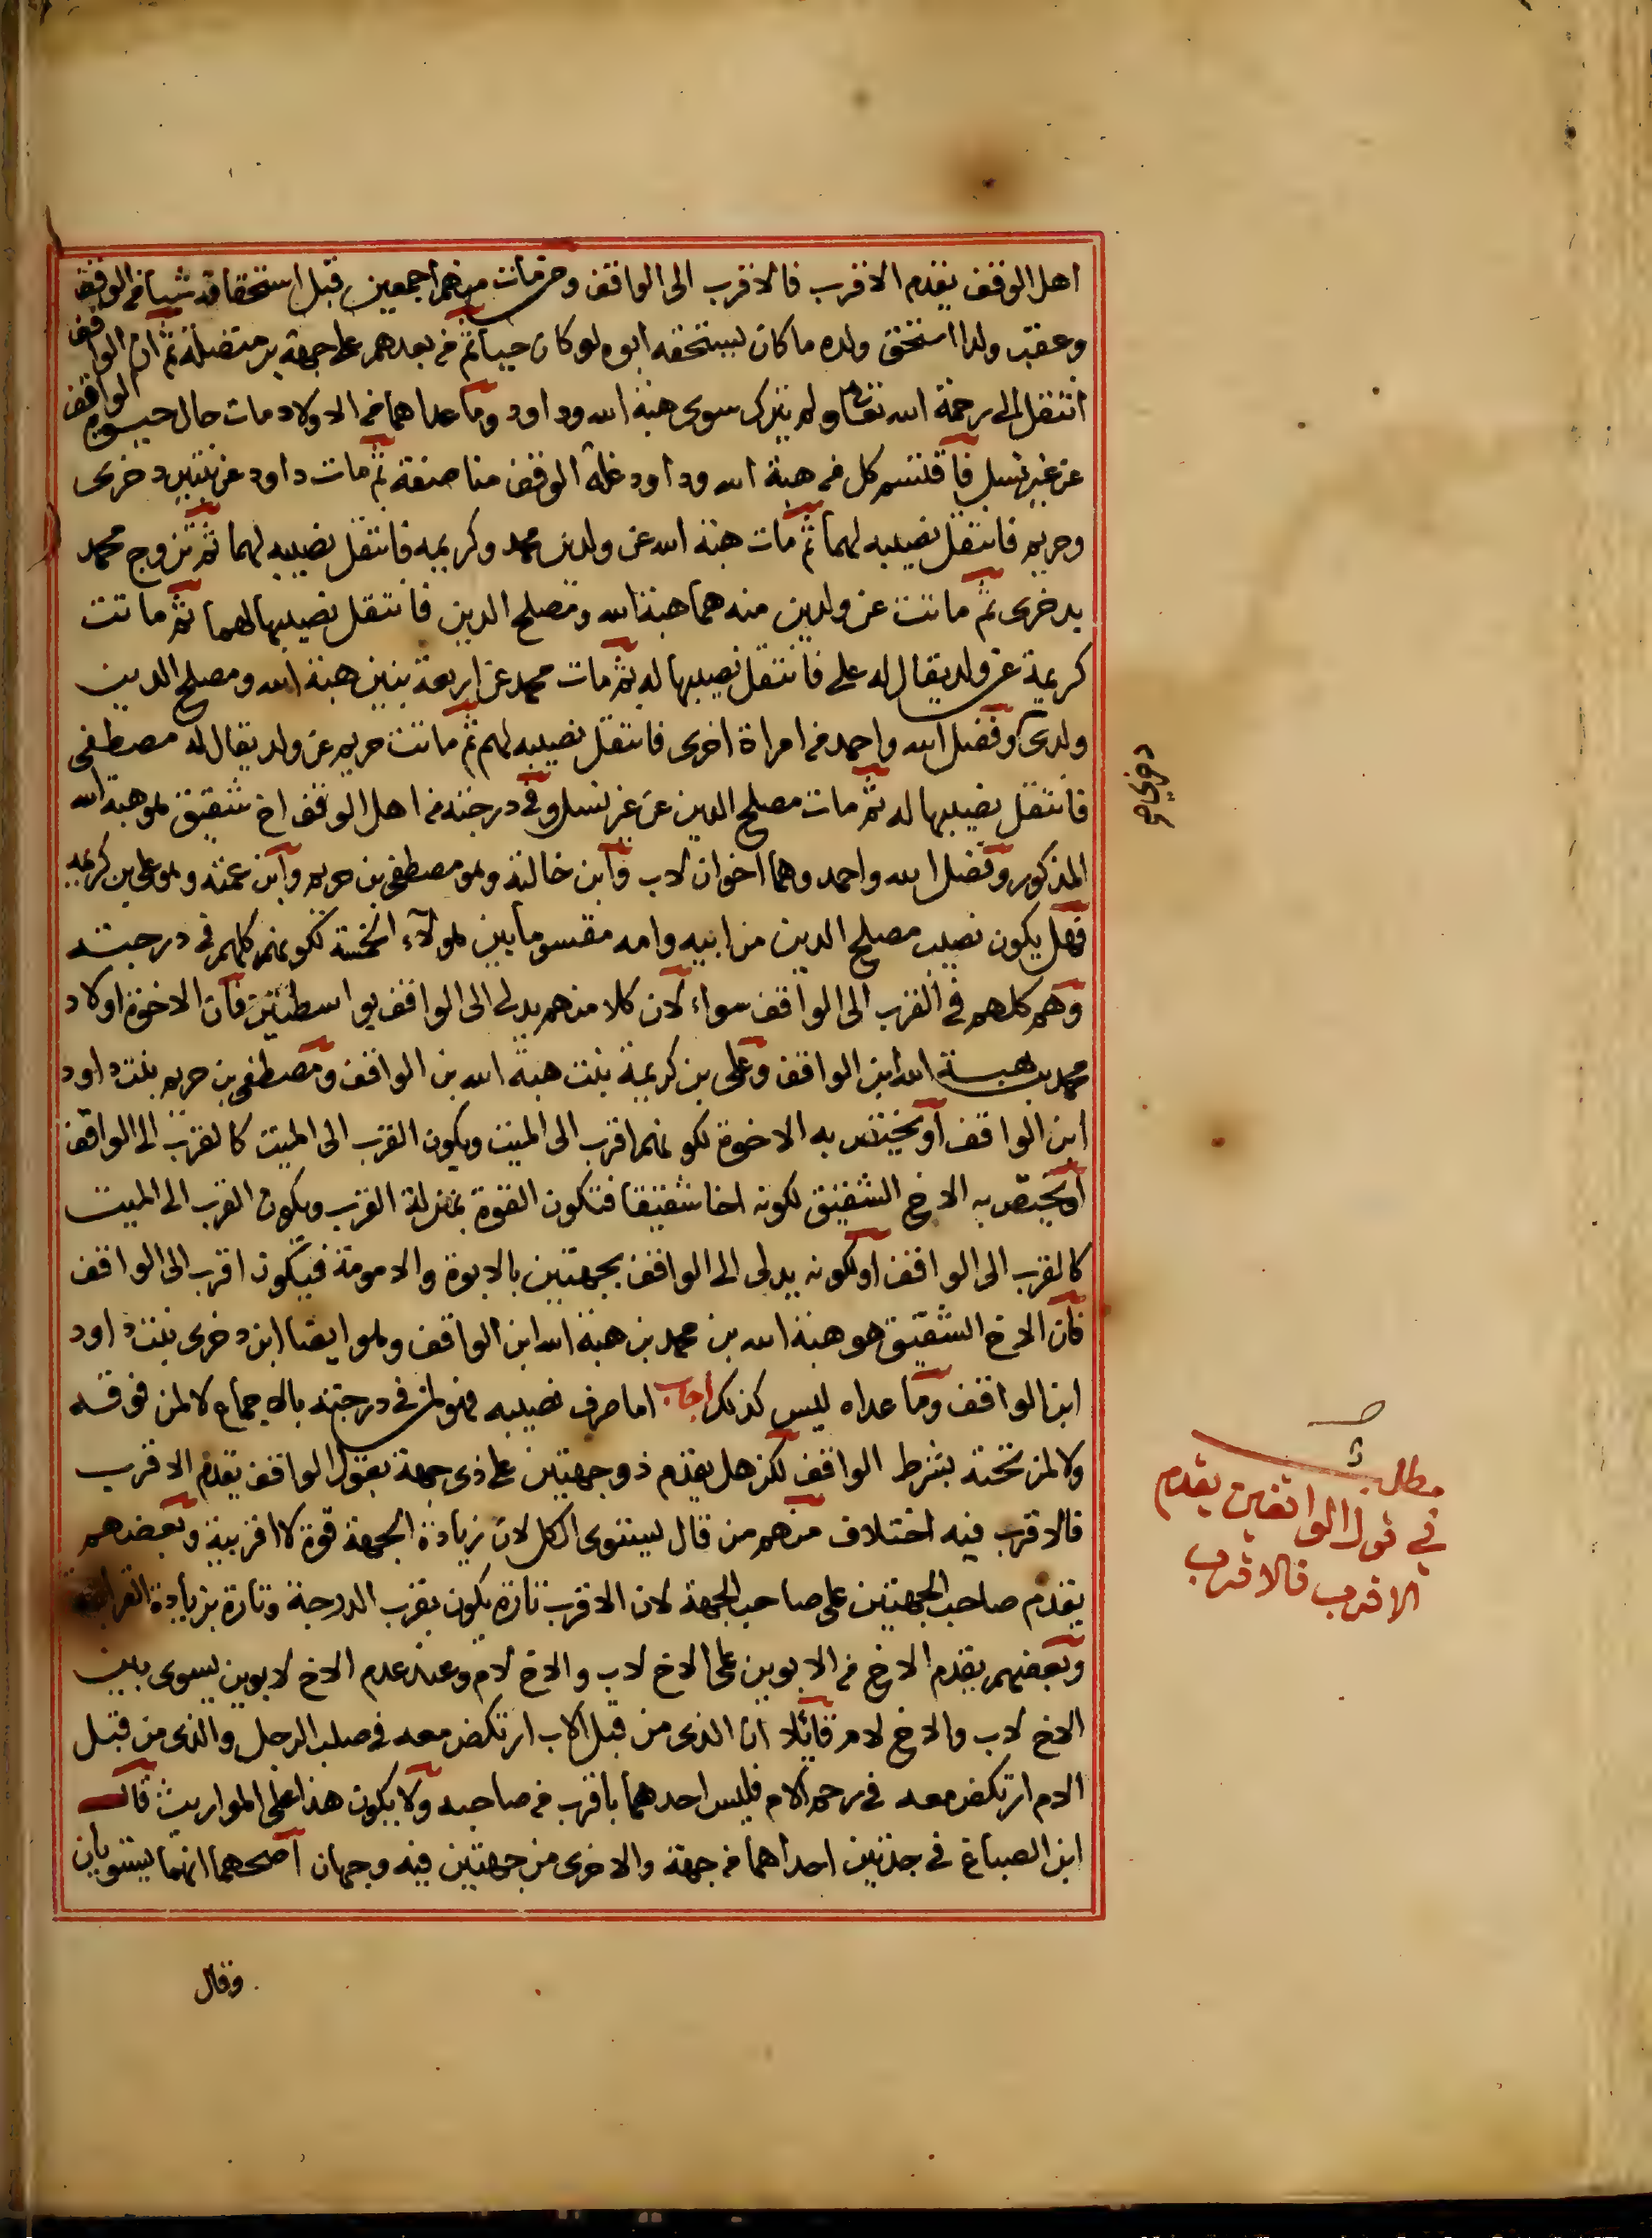 اهل الوقف يقدم الاقرب فالاقرب الى الواقف ومن مات منهم اجمعين قبل استحقاقه شيأ من الوقف
وعقب ولدا استحق ولده ما كان يستحقه ابوه لو كان حيا ثم من بعدهم على جهة بر متصلة ثم ان الواقف
انتقل الى رحمة الله تعالى ولم يترك سوى هبة الله وداود وما عداهما من الاولاد مات حال حيوة الواقف
عن غير نسل فاقتسم كل من هبة الله وداود غلة الوقف مناصفة ثم مات داود عن بنتين دخرى
وحريم فانتقل نصيبه لهما ثم مات هبة الله عن ولدين محمد وكريمه فانتقل نصيبه لهما ثم تزوج محمد
بدخرى ثم ماتت عن ولدين منه هما هبة الله ومصلح الدين فانتقل نصيبها لهما ثم ماتت
كريمة عن ولد يقال له على فانتقل نصيبها له ثم مات محمد عن اربعة بنين هبة الله ومصلح الدين
ولدى وفضل الله واحمد من امراة اخرى فانتقل نصيبه لهم ثم ماتت حريم عن ولد يقال له مصطفى
فانتقل نصيبها له ثم مات مصلح الدين عن غير نسل وفى درجته من اهل الوقف اخ شقيق هو هبة الله
المذكور وفضل الله واحمد وهما اخوان لاب وابن خالته وهو مصطفى بن حريم وابن عمته وهو على بن كريمه
فهل يكون نصيب مصلح الدين من ابيه وامه مقسوما بين هولآء الخمسة لكونهم كلهم فى درجته
وهم كلهم فى القرب الى الواقف سواء لان كلا منهم يدلى الى الواقف بواسطتين فان الاخوة اولاد
محمد بن هبة الله ابن الواقف وعلى بن كريمة بنت هبة الله بن الواقف ومصطفى بن حريم بنت داود
ابن الواقف او يختص به الاخوة لكونهم اقرب الى الميت ويكون القرب الى الميت كالقرب الى الواقف
او يختص به الاخ الشقيق لكونه اخا شقيقا فتكون القوة بمنزلة القرب ويكون القرب الى الميت
كالقرب الى الواقف او لكونه يدلى الى الواقف بجهتين بالابوة والامومة فيكون اقرب الى الواقف
فان الاخ الشقيق هو هبة الله بن محمد بن هبة الله ابن الواقف وهو ايضا ابن دخرى بنت داود
ابن الواقف وما عداه ليس كذلك اجاب اما صرف نصيبه فهو لمن فى درجته بالاجماع لا لمن فوقه
ولا لمن تحته بشرط الواقف لكن هل يقدم ذو جهتين على ذى جهة بقول الواقف يقدم الاقرب
فالاقرب فيه اختلاف منهم من قال يستوى الكل لان زيادة الجهة قوة لا اقربية وبعضهم
يقدم صاحب الجهتين على صاحب الجهة لان الاقرب تارة يكون بقرب الدرجة وتارة بزيادة القرابة
وبعضهم يقدم الاخ من الابوين على الاخ لاب والاخ لام وعند عدم الاخ لابوين يسوى بين
الاخ لاب والاخ لام قائلا ان الذى من قبل الاب ارتكض معه فى صلب الرجل والذى من قبل
الام ارتكض معه فى رحم الام فليس احدهما باقرب من صاحبه ولا يكون هذا على المواريث قال
ابن الصباغ فى جدتين احداهما من جهة والاخرى من جهتين فيه وجهان اصحهما انهما يستويان
وقال
دخرى صح
مطلب
في قول الواقفين يقدم
الاقرب فالاقرب